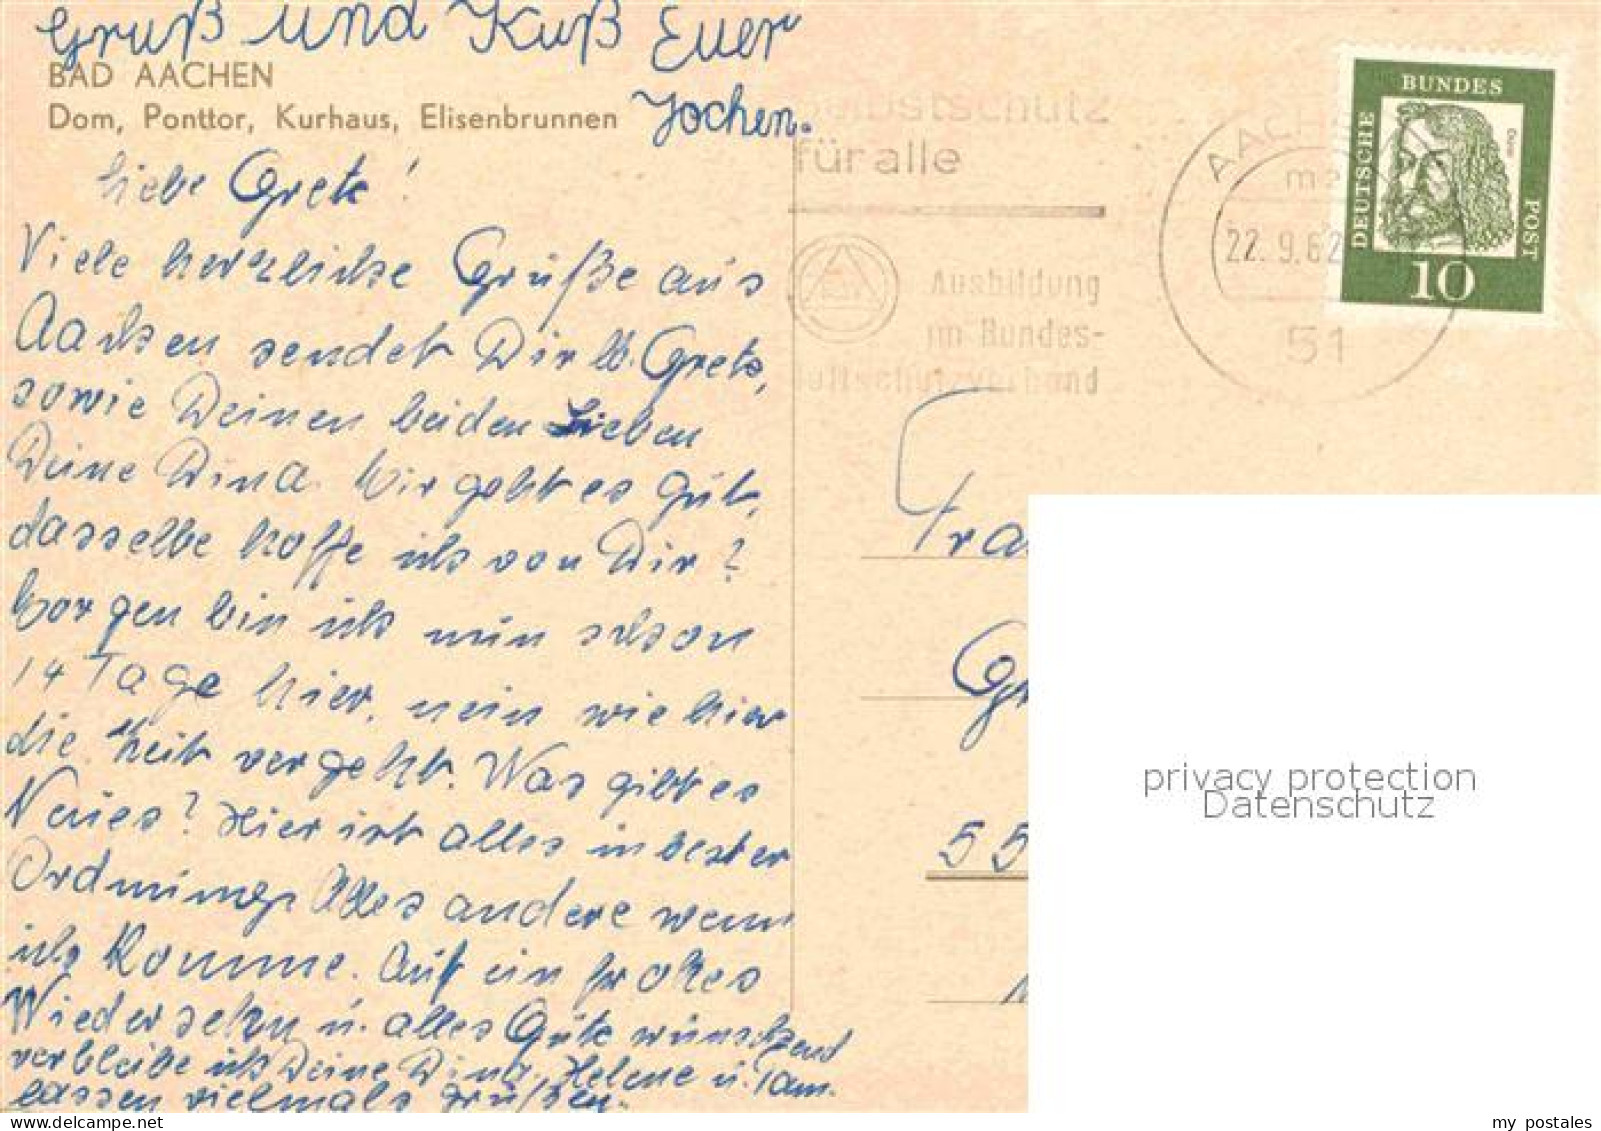 Gruß und Kuß Euer
Jochen.
BAD AACHEN
Dom, Ponttor, Kurhaus, Elisenbrunnen
Liebe Grete!
Viele herzliche Grüße aus
Aachen sendet Dir lb. Grete,
sowie Deinen beiden Lieben
Deine Dina. Mir geht es gut,
dasselbe hoffe ich von Dir?
Morgen bin ich nun schon
14 Tage hier, nein wie hier
die Zeit vergeht. Was gibt es
Neues? Hier ist alles in bester
Ordnung. Alles andere wenn
ich komme. Auf ein frohes
Wiedersehn u. alles Gute wünschend
verbleibe ich Deine Dina. Helene u. Fam.
lassen vielmals grüßen.
Selbstschutz
für alle
Ausbildung
im Bundes-
luftschutzverband
AACHEN
22. 9. 62
51
DEUTSCHE
BUNDES
POST
10
Fra
Gr
55
privacy protection
Datenschutz
my postales